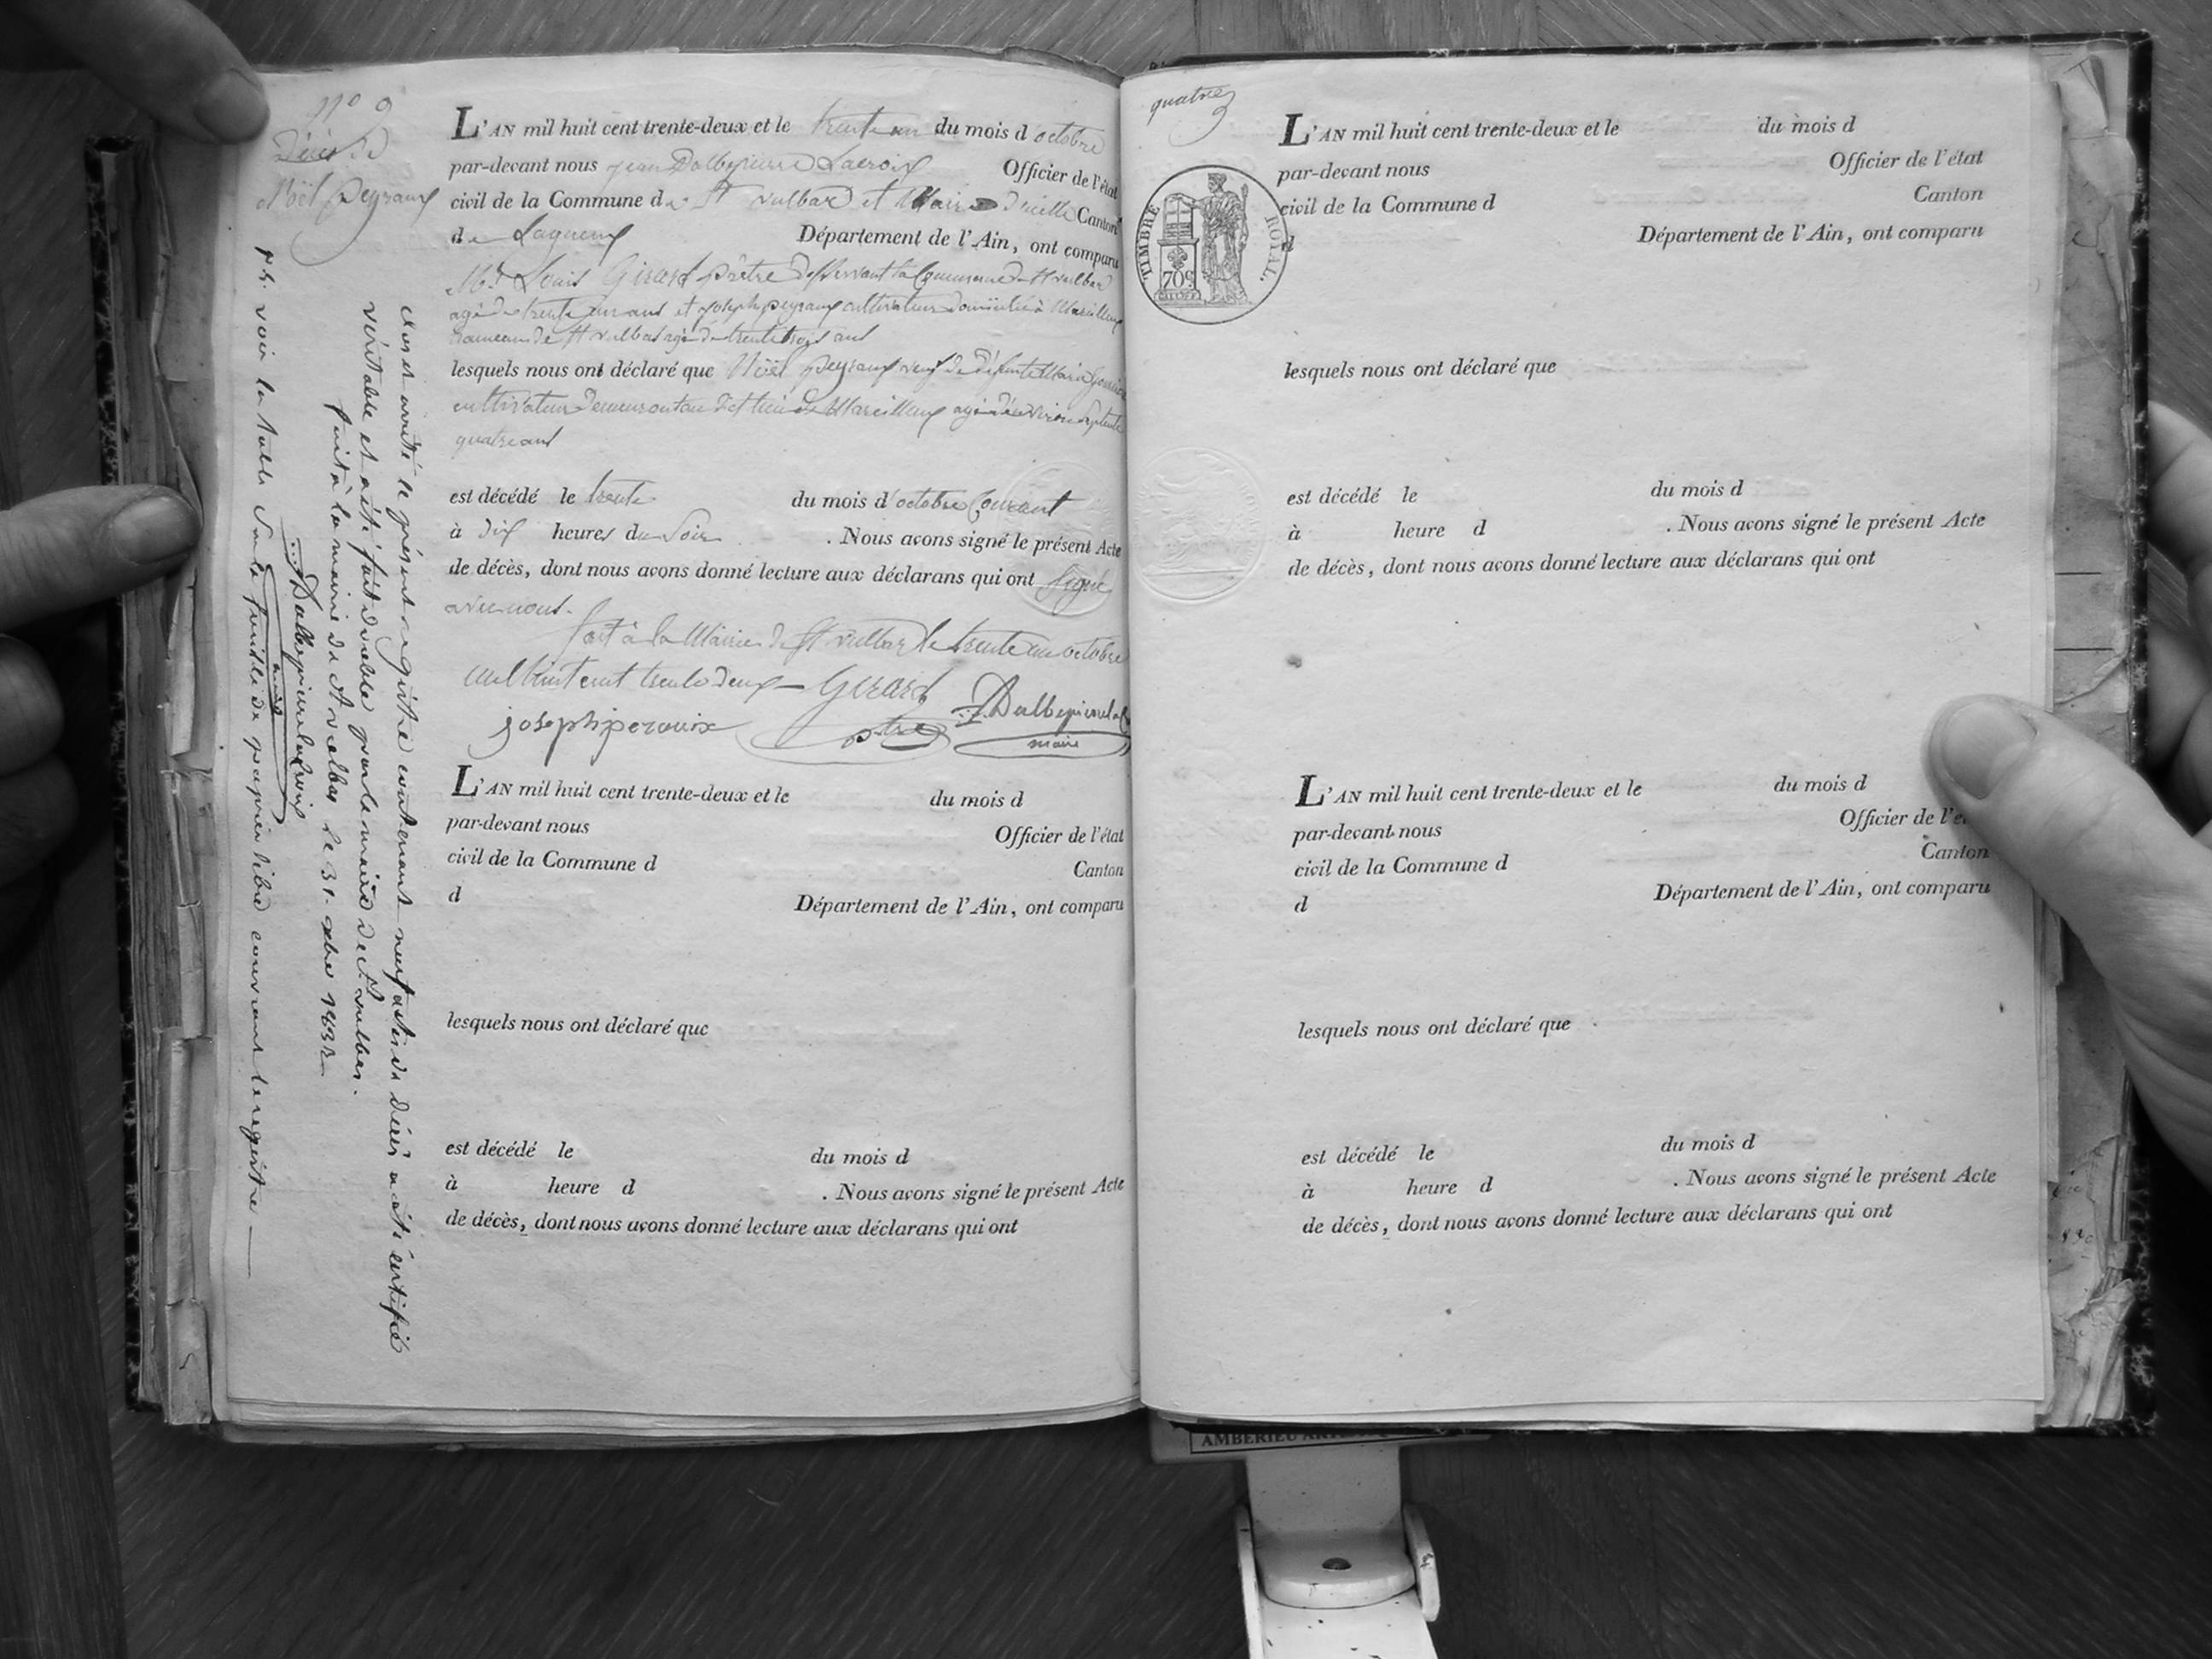 N° 9
Décès de
Noël Peyraux
L'AN mil huit cent trente-deux et le trente un du mois d'octobre
par-devant nous jean Dalbepierre Lacroix Officier de l'état
civil de la Commune de St vulbas et Maire d'icelle Canton
de Lagnieux Département de l'Ain, ont comparu
Mr Louis Girard prêtre desservant la Commune de St vulbas
agé de trente un ans et joseph peyraux cultivateur domicilié à Marcilleux
hameau de St vulbas agé de trente trois ans
lesquels nous ont déclaré que Noël peyraux veuf de défunte Marie
cultivateur demeurant au dit lieu de Marcilleux agé d'environ septante
quatre ans
est décédé le trente du mois d'octobre courant
à dix heures du soir . Nous avons signé le présent Acte
de décès, dont nous avons donné lecture aux déclarans qui ont signé
avec nous.
fait à la Mairie de St vulbas le trente un octobre
mil huit cent trente deux – Girard
joseph perouix ptre Dalbepierrelac
maire
L'AN mil huit cent trente-deux et le du mois d
par-devant nous Officier de l'état
civil de la Commune d Canton
d Département de l'Ain, ont comparu
lesquels nous ont déclaré que
est décédé le du mois d
à heure d . Nous avons signé le présent Acte
de décès, dont nous avons donné lecture aux déclarans qui ont
clos et arrêté le présent registre contenant neuf actes de décès a été certifié
véritable et a été fait double par le maire de St vulbas.
fait à la mairie de St vulbas le 31. xbre 1832
Dalbepierrelacroix
maire
p.s. voir la table sur la feuille de papier libre couvrant le registre —
quatre
TIMBRE ROYAL.
70c
L'AN mil huit cent trente-deux et le du mois d
par-devant nous Officier de l'état
civil de la Commune d Canton
d Département de l'Ain, ont comparu
lesquels nous ont déclaré que
est décédé le du mois d
à heure d . Nous avons signé le présent Acte
de décès, dont nous avons donné lecture aux déclarans qui ont
L'AN mil huit cent trente-deux et le du mois d
par-devant nous Officier de l'é
civil de la Commune d Canton
d Département de l'Ain, ont comparu
lesquels nous ont déclaré que
est décédé le du mois d
à heure d . Nous avons signé le présent Acte
de décès, dont nous avons donné lecture aux déclarans qui ont
AMBERIEU